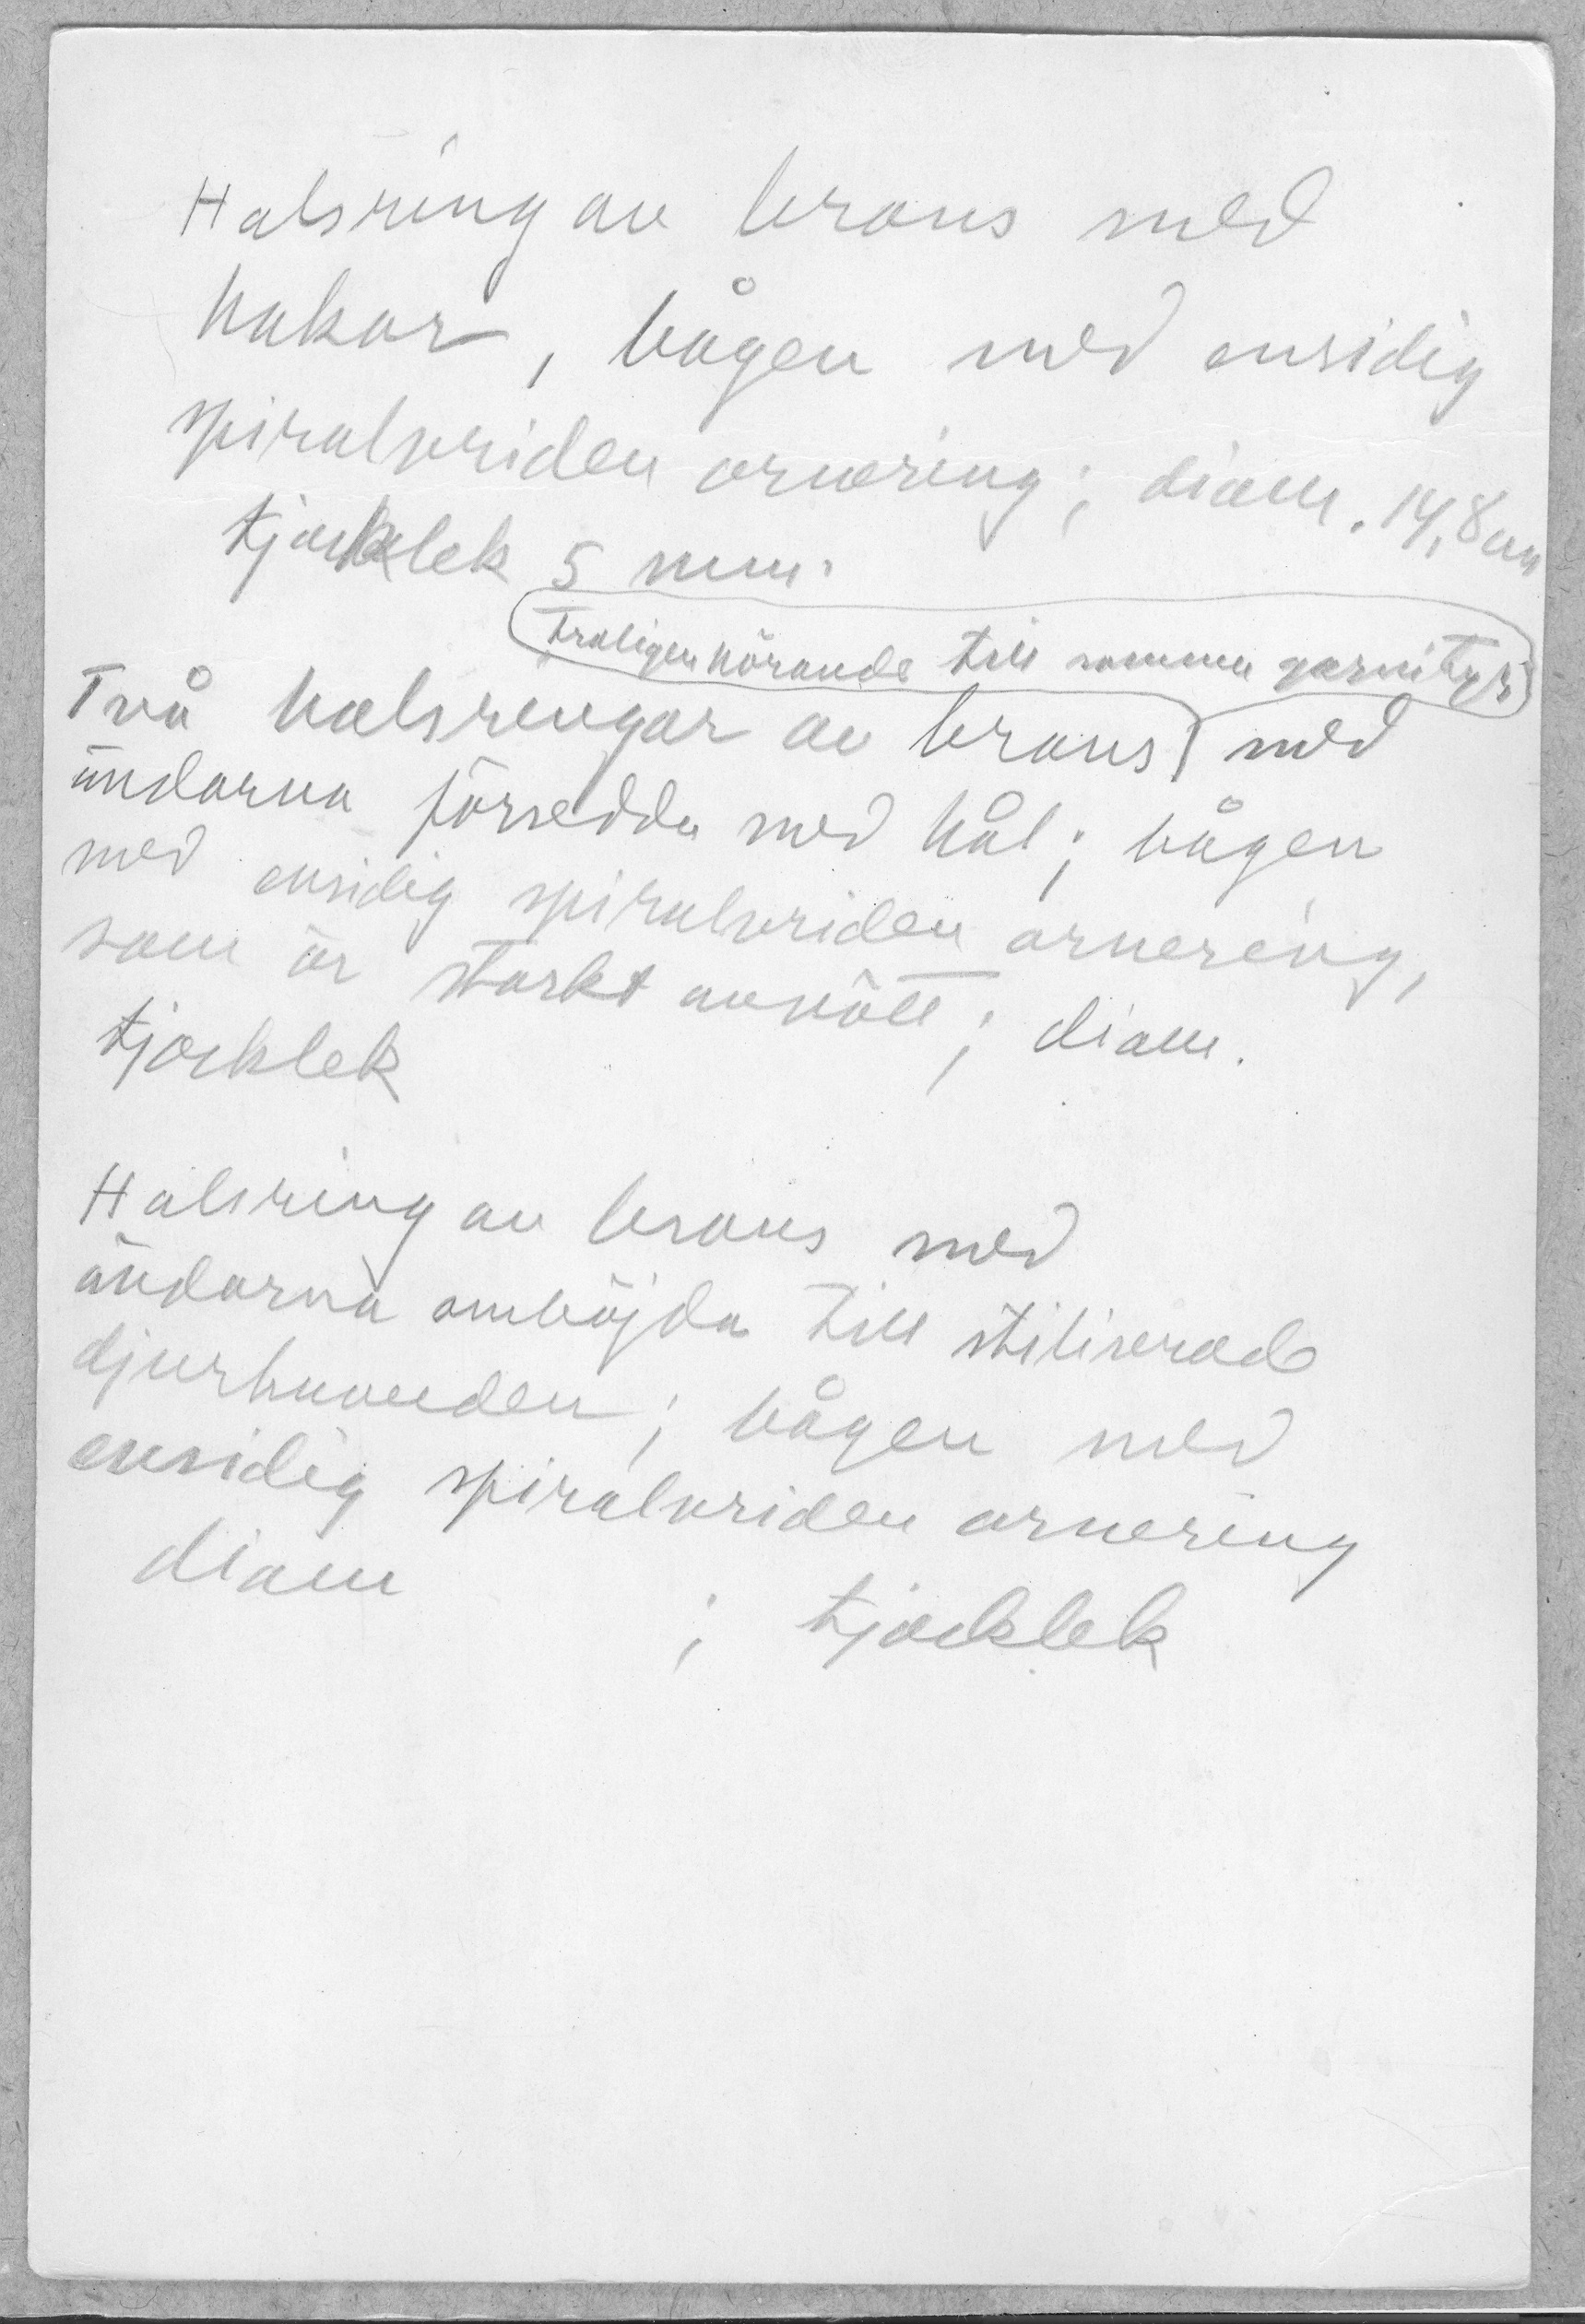 Halsring av brons med
hakar, bågen med ensidig
spiralvriden ornering; diam. 14,8 cm
tjocklek 5 mm.
troligen hörande till samma garnityr
Två halsringar av brons med
ändarna försedda med hål; bågen
med ensidig spiralvriden ornering,
som är starkt avnött; diam.
tjocklek
Halsring av brons med
ändarna omböjda till stiliserade
djurhuvuden; bågen med
ensidig spiralvriden ornering
diam ; tjocklek